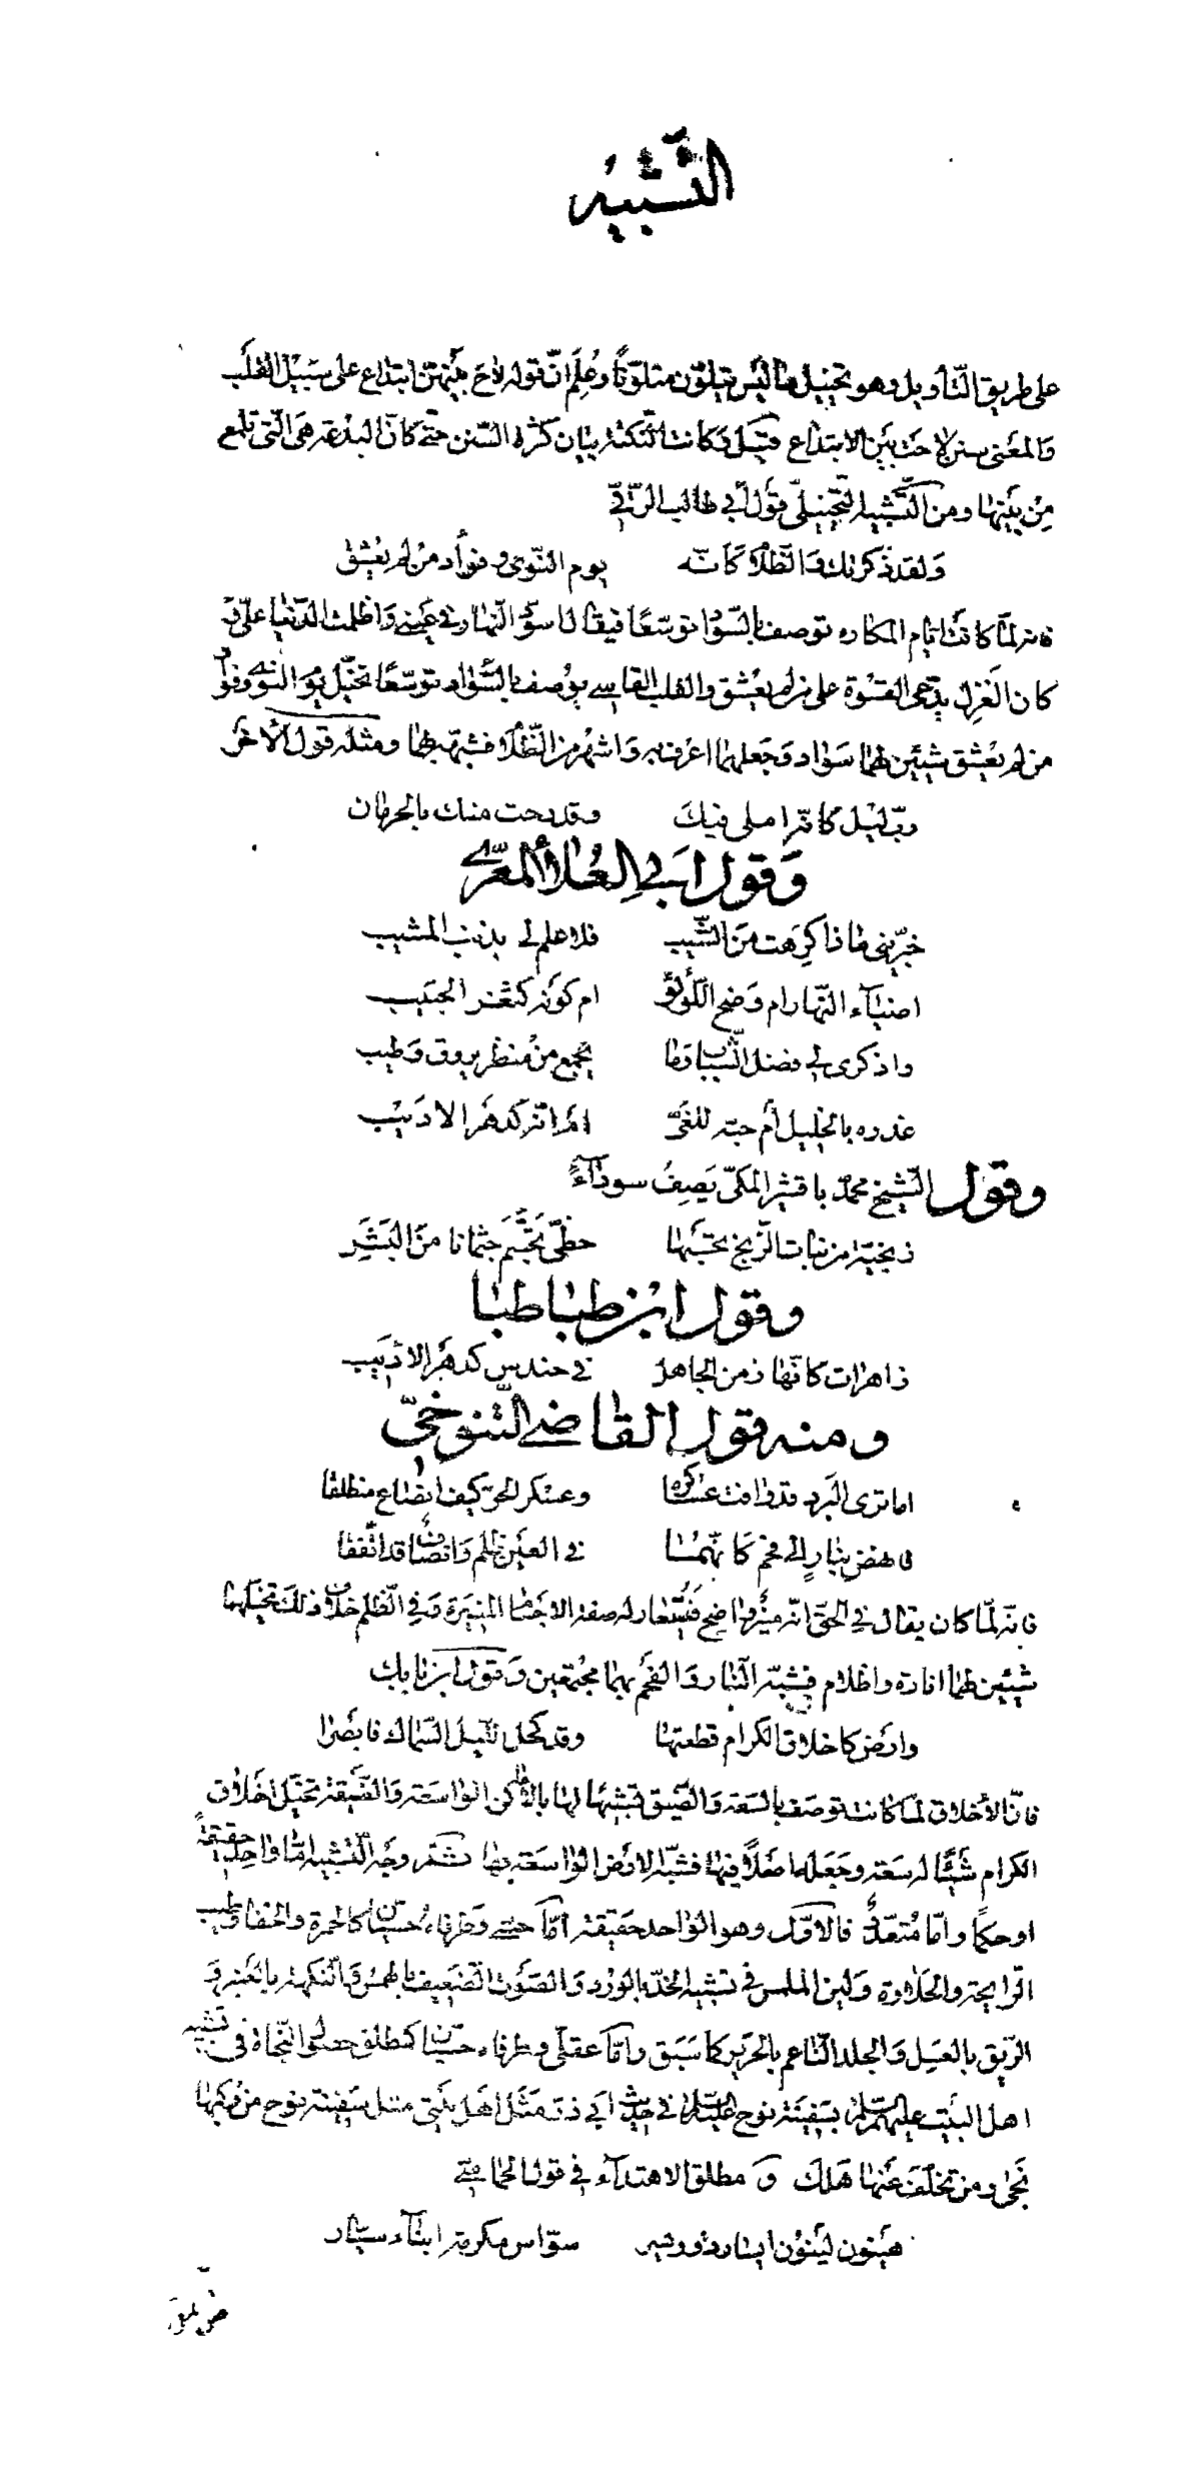 التشبيه
على طريق التأويل وهو تخييل ما ليس بمتلون متلونا وعلم ان قوله لاح بينهن ابتداع على سبيل القلب
والمعنى سنن لاحت بين الابتداع قيل وكانت النكتة بيان كثرة السنن حتى كان البدعة هى التى تلمع
من بينها ومن التشبيه التخييلى قول أبي طالب الرقي
ولقد ذكرتك والظلام كانه يوم النوى وفؤاد من لم يعشق
فانه لما كانت ايام المكاره توصف بالسواد توسعا فيقال اسود النهار في عينى واظلمت الدنيا على و
كان الغزل يدعى القسوة على من لم يعشق والقلب القاسي يوصف بالسواد توسعا تخيل يوم النوى وفؤاد
من لم يعشق شيئين لهما سواد وجعلهما اعرف به واشهر من الظلام فشبهه بهما ومثله قول الآخر
رب ليل كانه املى فيك وقد رحت منك بالحرمان
وقول ابي العلا المعري
خبريني ماذا كرهت من الشيب فلا علم لى بذنب المشيب
اضيآء النهار ام وضح اللؤلؤ ام كونه كثغر الحبيب
واذكرى لي فضل الشباب وما يجمع من منظر يروق وطيب
غدره بالخليل أم حبه للغى ام انه كدهر الاديب
وقول الشيخ محمد باقشير المكى يصف سودآء
زنجية من بنات الزنج تحسبها حظى تجسم جثمانا من البشر
وقول ابن طباطبا
زاهرات كانها زمن الجاهل في حندس كدهر الاديب
ومنه قول القاضي التنوخي
اما ترى البرد قد وافت عساكره وعسكر الحر كيف انصاع منطلقا
فانهض بنار الى فحم كانهما في العين ظلم وانصاف قد اتفقا
فانه لما كان يقال في الحق انه منير واضح فيستعار له صفة الاجسام المنيرة وفي الظلم خلاف ذلك تخيلهما
شيئين لهما انارة واظلام فشبه النار والفحم بهما مجتمعين وقول ابن بابك
وارض كاخلاق الكرام قطعتها وقد كحل الليل السماك فابصرا
فان الأخلاق لما كانت توصف بالسعة والضيق تشبيها لها بالاماكن الواسعة والضيقة تخيل اخلاق
الكرام شيئا له سعة وجعله اصلا فيها فشبه الارض الواسعة بها ثم وجه التشبيه اما واحد حقيقة
او حكما واما متعدد فالاول وهو الواحد حقيقة اما حسي وطرفاه حسيان كالحمرة والخفا وطيب
الرايحة والحلاوة ولين الملمس في تشبيه الخد بالورد والصوت الضعيف بالهمس والنكهة بالعنبر و
الريق بالعسل والجلد الناعم بالحرير كما سبق واما عقلي وطرفاه حسيان كمطلق حصول النجاة في تشبيه
اهل البيت عليهم السلم بسفينة نوح عليه السلام في حديث ابي ذر مثل اهل بيتى مثل سفينة نوح من ركبها
نجى ومن تخلف عنها هلك و مطلق الاهتدآء في قول الحماسي
هينون لينون ايسار ذوو يسر سواس مكرمة ابنآء سيار